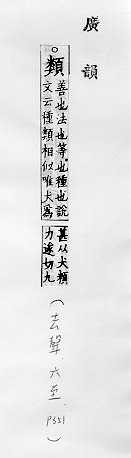 廣韻
類
善也法也等也種也說
文云種類相似唯犬爲
甚从犬頪
力遂切九
(去聲 六至 P351)